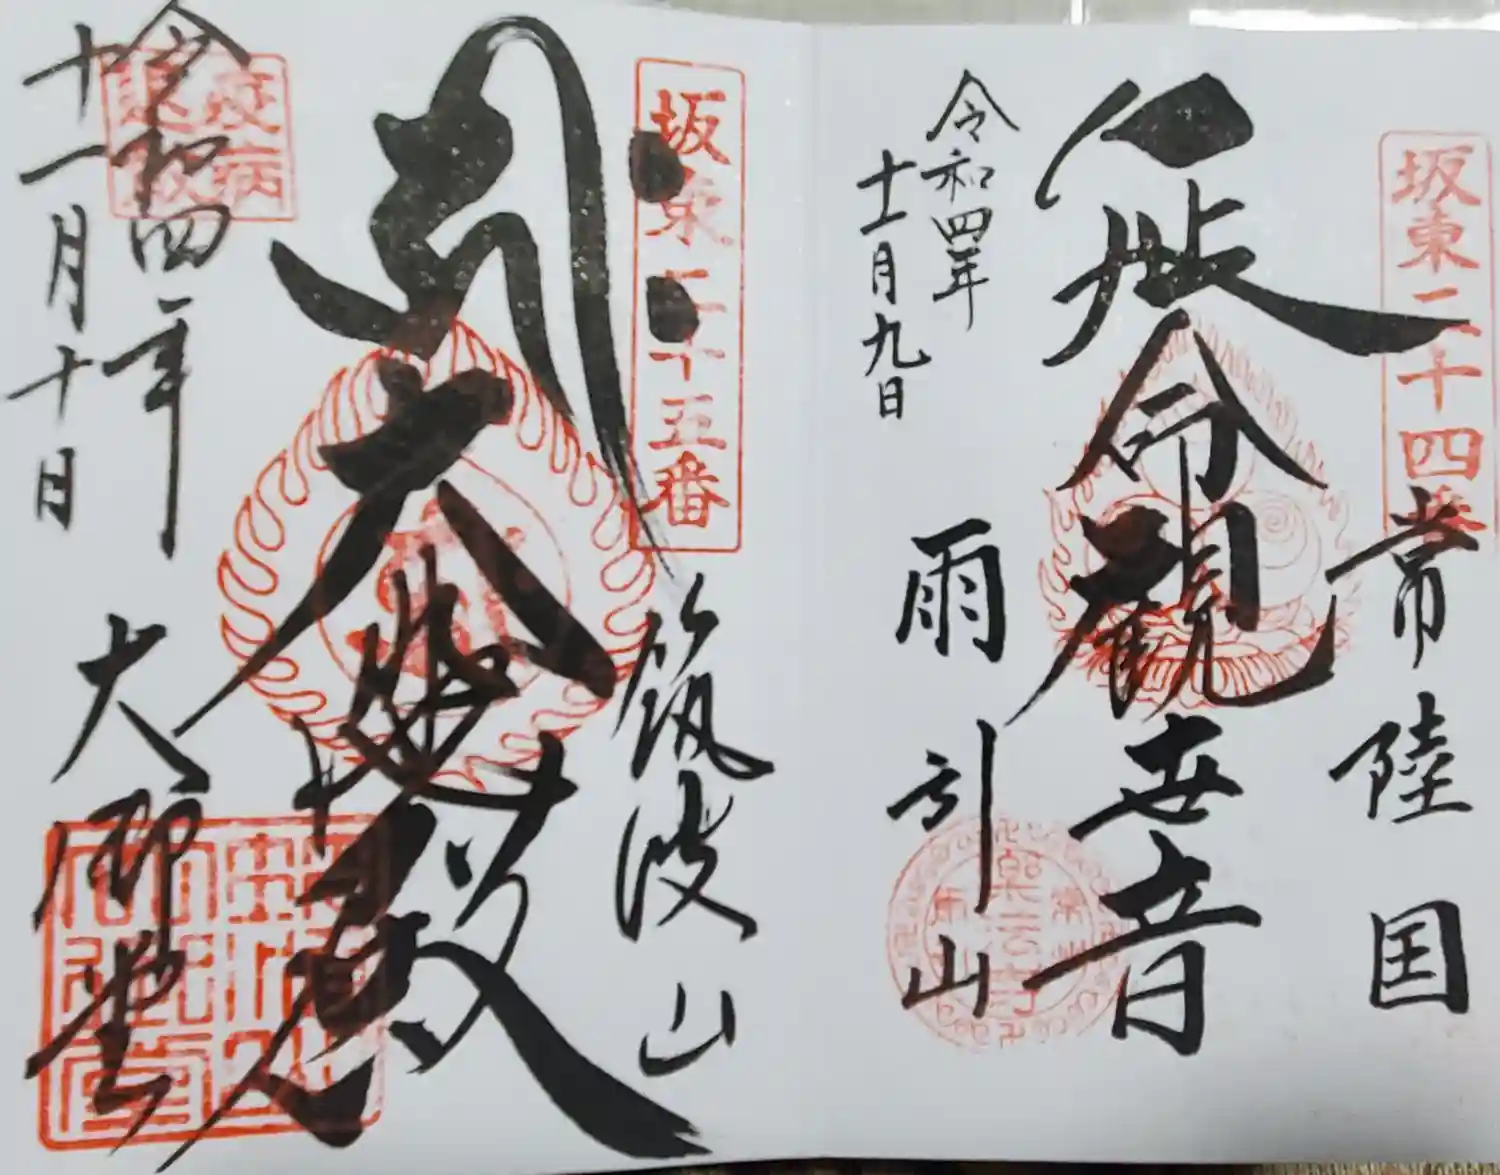 坂東二十四番
常陸国
延命観世音
令和四年
十一月九日
雨引山
坂東二十五番
筑波山
大悲殿
疫病
令和四年
十一月十日
大御堂